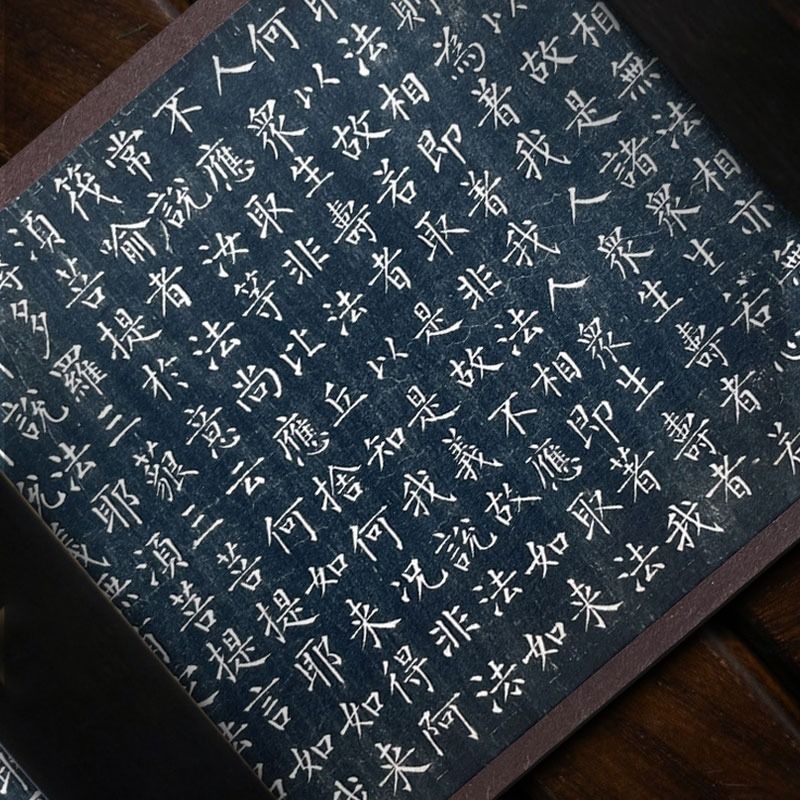 相無法相亦無
以故是諸衆生若心
則為著我人衆生壽者若
法相即著我人衆生壽者
何以故若取非法相即著我
人衆生壽者是故不應取法
不應取非法以是義故如来
常說汝等比丘知我說法如
筏喻者法尚應捨何況非法
湏菩提於意云何如来得阿
多羅三藐三菩提耶如来
說法耶湏菩提言如我
義無